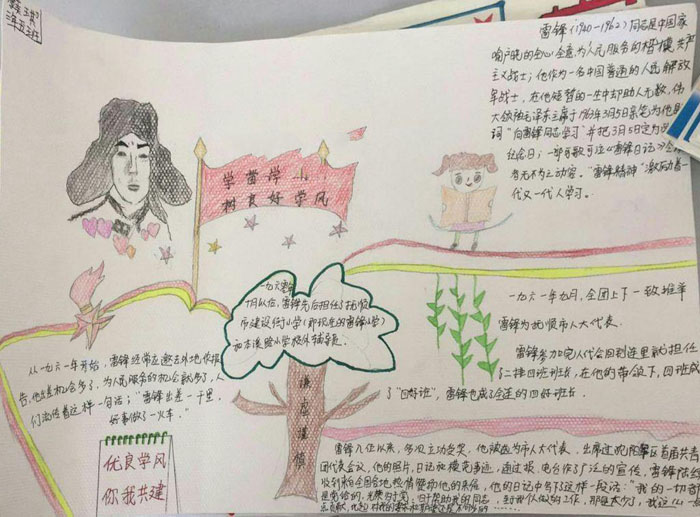 三年五班
雷锋(1940-1962)同志是中国家
喻户晓的全心全意为人民服务的楷模,共产
主义战士;他作为一名中国普通的人民解放
军战士,在他短暂的一生中却助人无数,伟
大领袖毛泽东主席于1963年3月5日亲笔为他题
词"向雷锋同志学习"并把3月5日定为
纪念日;一部可歌可泣《雷锋日记》
者无不为之动容。"雷锋精神"激励着一
代又一代人学习。
学雷锋
树良好学风
一九六
月以后,雷锋先后担任了抚顺
市建设街小学(即现在的雷锋小学)
和本溪路小学校外辅导员。
谦虚谨慎
一九六一年九月,全团上下一致推举
雷锋为抚顺市人大代表。
雷锋参加完人代会回到连里就担任
了二排四班班长,在他的带领下,四班成
了"四好班",雷锋也成了全连的四好班长
从一九六一年开始,雷锋经常应邀去外地作报
告,他出差机会多了,为人民服务的机会就多了,人
们流传着这样一句话:"雷锋出差一千里,
好事做了一火车。"
优良学风
你我共建
雷锋入伍以来,多次立功受奖,他被选为市人大代表,出席过沈阳军区首届共青
团代表会议,他的照片、日记和模范事迹,通过报、电台作了广泛的宣传,雷锋陆续
收到全国各地热情赞扬他的来信,他的日记中写了这样一段话:"我的一切都
是党给的,光荣归于党,归于帮助我的同志,